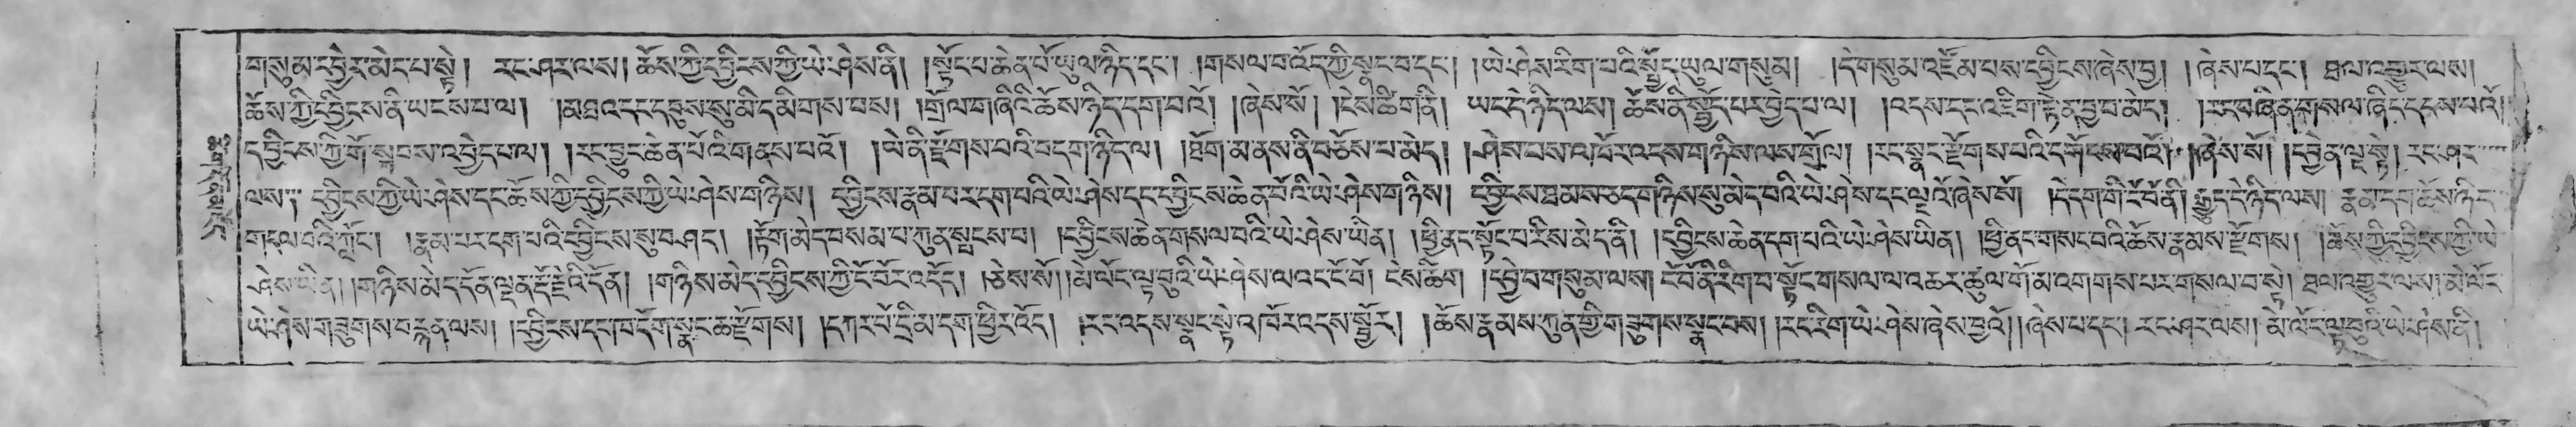 གསུམ་དབྱེར་མེད་པ་སྟེ། རང་ཤར་ལས། ཆོས་ཀྱི་དབྱིངས་ཀྱི་ཡེ་ཤེས་ནི། །སྟོང་པ་ཆེན་པོ་ཡུལ་ཉིད་དང་། །གསལ་བ་འོད་ཀྱི་སྣང་བ་དང་། །ཡེ་ཤེས་རིག་པའི་སྤྱོད་ཡུལ་གསུམ། །དེ་གསུམ་འཛོམ་པས་དབྱིངས་ཞེས་བྱ། །ཞེས་པ་དང་། ཐལ་འགྱུར་ལས།
ཆོས་ཀྱི་དབྱིངས་ནི་ཡངས་པ་ལ། །མཐའ་དང་དབུས་སུ་མི་དམིགས་པས། །གྲོལ་གཞིའི་ཆོས་ཉིད་དག་པའོ། །ཞེས་སོ། །ངེས་ཚིག་ནི། ཡང་དེ་ཉིད་ལས། ཆོས་ནི་སྤྱོད་པར་བྱེད་པ་ལ། །འདས་དང་འཇིག་རྟེན་བྱ་བ་མེད། །རང་བཞིན་གསལ་ཞིང་དྭངས་པའོ།
དབྱིངས་ཀྱི་གོ་སྐབས་འབྱེད་པ་ལ། །རང་བྱུང་ཆེན་པོའི་གནས་པའོ། །ཡེ་ནི་རྫོགས་པའི་བདག་ཉིད་ལ། །ཐོག་མ་ནས་ནི་བཅོས་པ་མེད། །ཤེས་པས་འཁོར་འདས་གཉིས་ལས་གྲོལ། །རང་སྣང་རྫོགས་པའི་དགོངས་པའོ། །ཞེས་སོ། །དབྱེ་ན་ལྔ་སྟེ། རང་ཤར
ལས། དབྱིངས་ཀྱི་ཡེ་ཤེས་དང་ཆོས་ཀྱི་དབྱིངས་ཀྱི་ཡེ་ཤེས་གཉིས། དབྱིངས་རྣམ་པར་དག་པའི་ཡེ་ཤེས་དང་དབྱིངས་ཆེན་པོའི་ཡེ་ཤེས་གཉིས། དབྱིངས་ཐམས་ཅད་གཉིས་སུ་མེད་པའི་ཡེ་ཤེས་དང་ལྔའོ་ཞེས་སོ། །དེ་དག་གི་ངོ་བོ་ནི། རྒྱུད་དེ་ཉིད་ལས། རྣམ་དག་ཆོས་ཉིད་
གདལ་བའི་ཀློང་། །རྣམ་པར་དག་པའི་དབྱིངས་སུ་བཤད། །རྟོག་མེད་བསམ་པ་ཀུན་སྤངས་པ། །དབྱིངས་ཆེན་གསལ་བའི་ཡེ་ཤེས་ཡིན། །ཕྱི་ནང་སྟོང་པ་རིས་མེད་ནི། །དབྱིངས་ཆེན་དག་པའི་ཡེ་ཤེས་ཡིན། །ཕྱི་ནང་གསང་བའི་ཆོས་རྣམས་རྫོགས། །ཆོས་ཀྱི་དབྱིངས་ཀྱི་ཡེ་
ཤེས་ཡིན། །གཉིས་མེད་དོན་ལྡན་རྡོ་རྗེའི་དོན། །གཉིས་མེད་དབྱིངས་ཀྱི་ངོ་བོར་འདོད། །ཅེས་སོ། །མེ་ལོང་ལྟ་བུའི་ཡེ་ཤེས་ལའང་ངོ་བོ། ངེས་ཚིག །དབྱེ་བ་གསུམ་ལས། ངོ་བོ་ནི་རིག་པ་སྟོང་གསལ་ལ་འཆར་ཚུལ་གོ་མ་འགགས་པར་གསལ་བ་སྟེ། ཐལ་འགྱུར་ལས། མེ་ལོང་
ཡེ་ཤེས་གཟུགས་བརྙན་ལས། །དབྱིངས་དང་ཁ་དོག་སྣང་ཆ་རྫོགས། །དཀར་པོ་དྲི་མ་དག་ཕྱིར་འོད། །རང་འདས་སྣང་སྟེ་འཁོར་འདས་སྦྱོར། །ཆོས་རྣམས་ཀུན་གྱི་གཟུགས་སྣང་བས། །རང་རིག་ཡེ་ཤེས་ཞེས་བྱའོ། །ཞེས་པ་དང་། རང་ཤར་ལས། མེ་ལོང་ལྟ་བུའི་ཡེ་ཤེས་ནི།